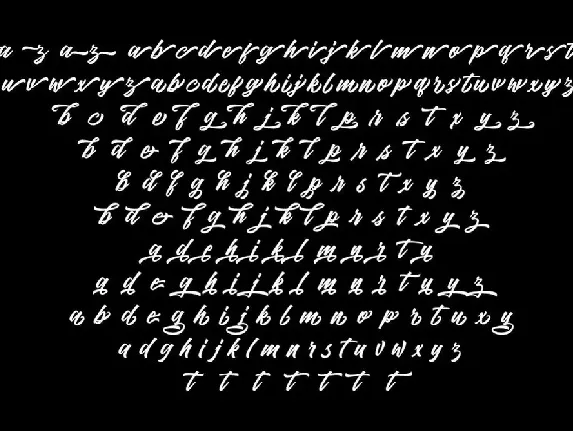 a z a z a b c d e f g h i j k l m n o p q r s t
u v w x y z a b c d e f g h i j k l m n o p q r s t u v w x y z
b c d e f g h j k l p r s t x y z
b d e f g h j k l p r s t x y z
b d f g h j k l p r s t x y z
b d e f g h j k l p r s t x y z
a d e h i k l m n r t u
a d e g h i j k l m n r t u y z
a b d e g h i j k l m n o p r t u x y
a d g h i j k l m n r s t u v w x y z
t t t t t t t